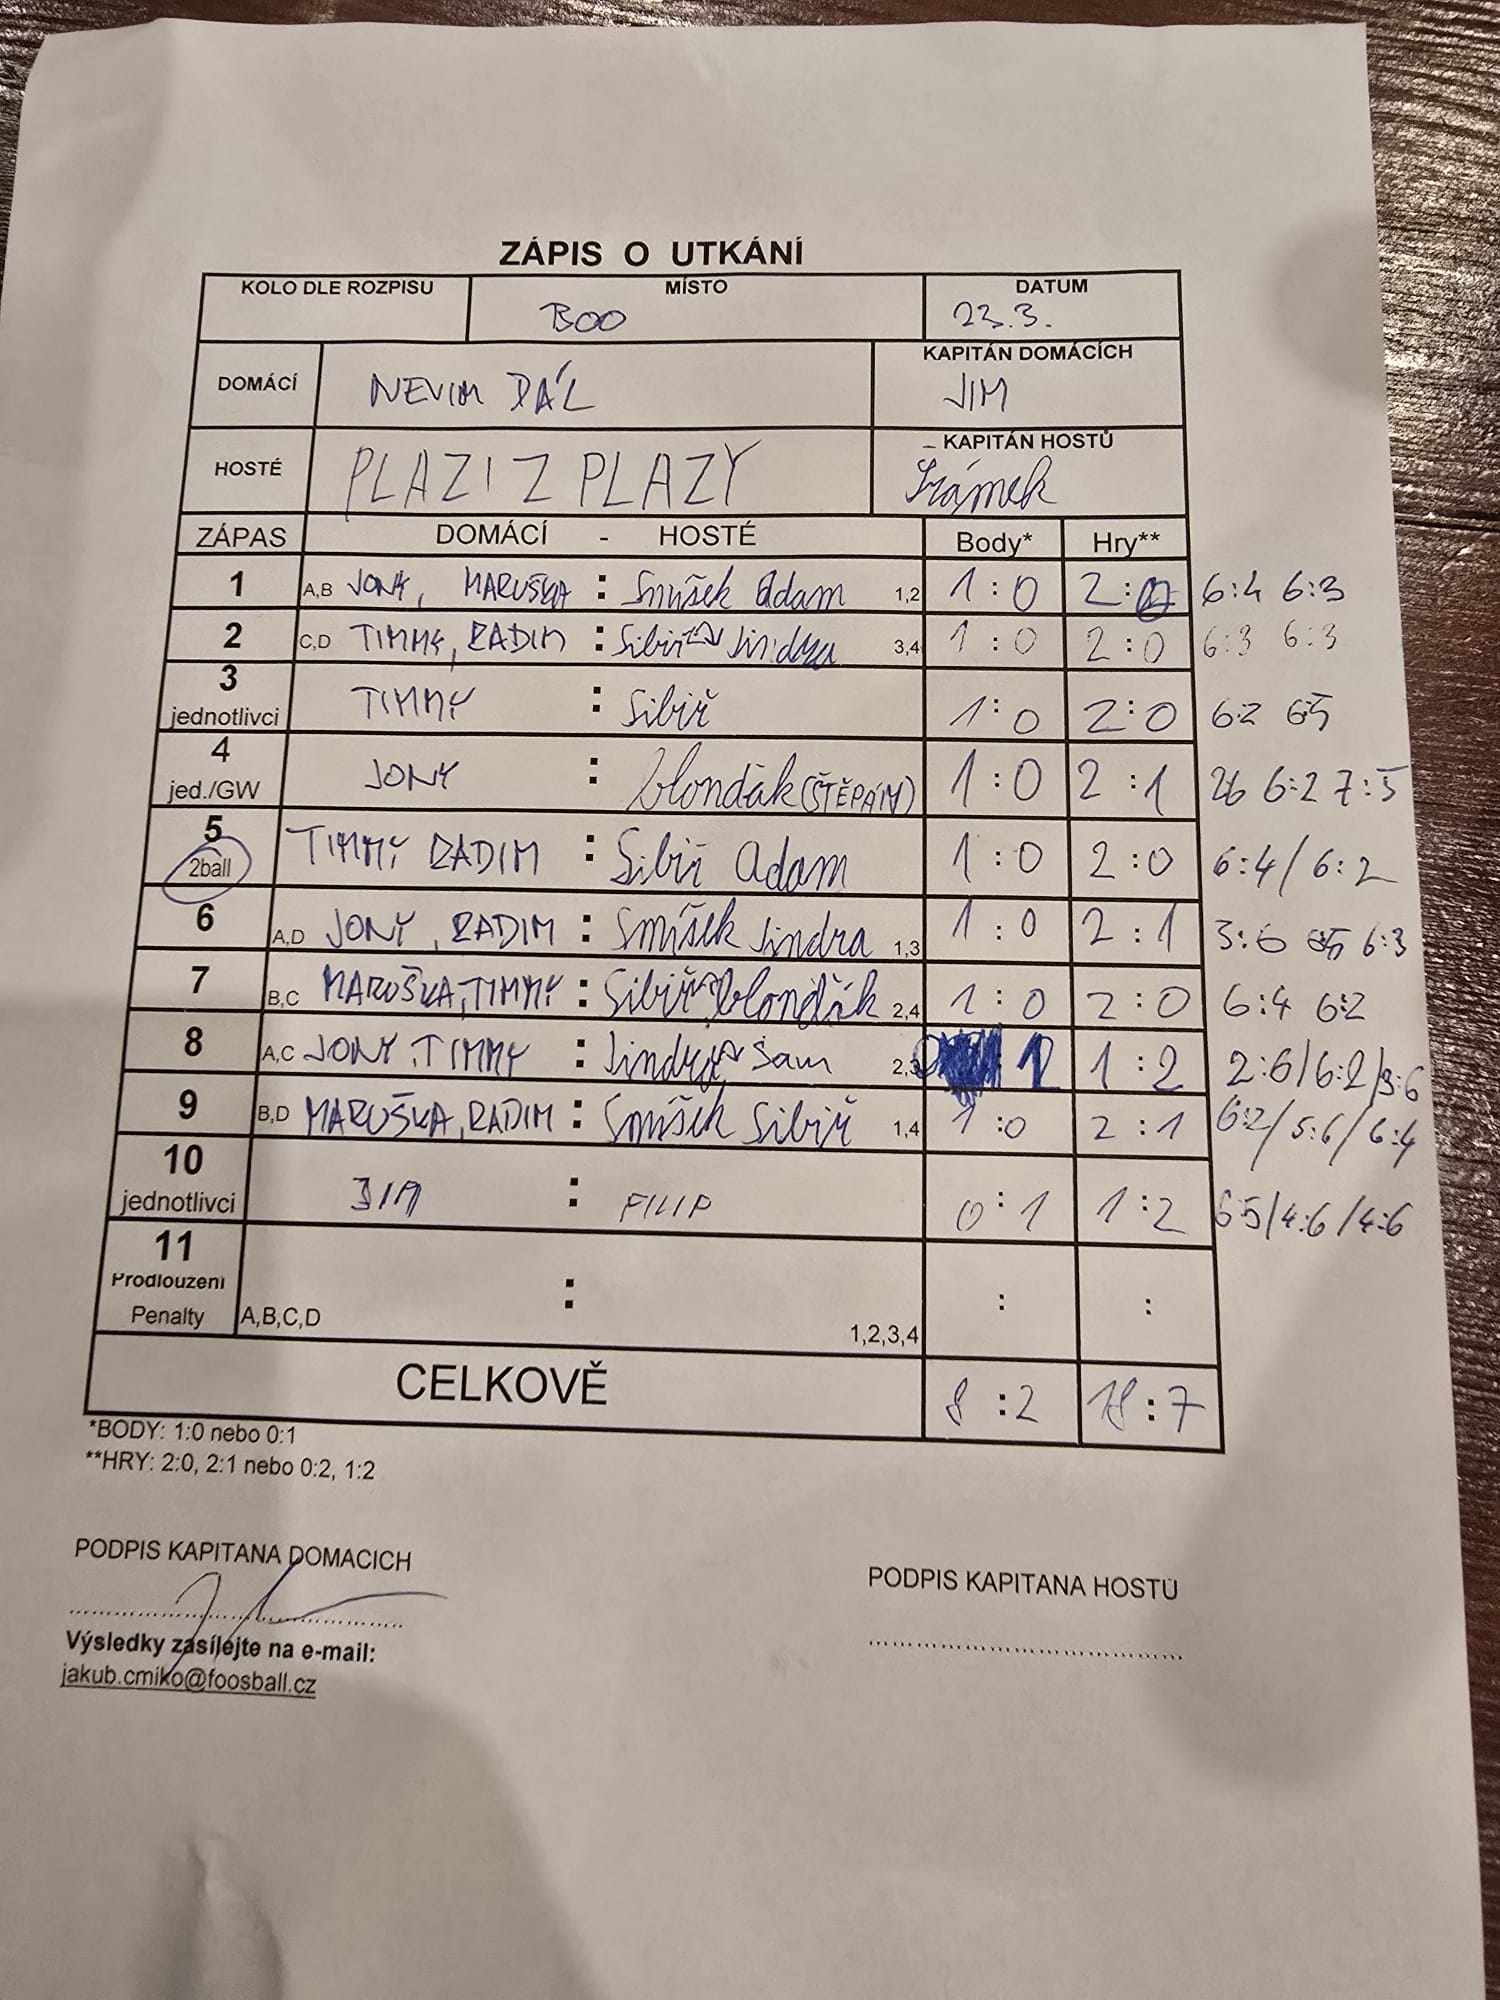 ZÁPIS O UTKÁNÍ
KOLO DLE ROZPISU MÍSTO DATUM
BOO 23.3.
DOMÁCÍ NEVIM DÁL KAPITÁN DOMÁCÍCH JIM
HOSTÉ PLAZI Z PLAZY KAPITÁN HOSTŮ
ZÁPAS DOMÁCÍ - HOSTÉ Body* Hry**
1 A,B JONY, MARUŠKA : Smíšek Adam 1,2 1:0 2:0 6:4 6:3
2 C,D TIMMY, RADIM : Sibiř Jindra 3,4 1:0 2:0 6:3 6:3
3 jednotlivci TIMMY : Sibiř 1:0 2:0 6:2 6:5
4 jed./GW JONY : blonďák (ŠTĚPÁN) 1:0 2:1 26 6:2 7:5
5 2ball TIMMY RADIM : Sibiř Adam 1:0 2:0 6:4/6:2
6 A,D JONY, RADIM : Smíšek Jindra 1,3 1:0 2:1 3:6 6:5 6:3
7 B,C MARUŠKA, TIMMY : Sibiř blonďák 2,4 1:0 2:0 6:4 6:2
8 A,C JONY, TIMMY : Jindra Sam 2,3 0 1 1:2 2:6/6:2/3:6
9 B,D MARUŠKA, RADIM : Smíšek Sibiř 1,4 1:0 2:1 6:2/5:6/6:4
10 jednotlivci JIM : FILIP 0:1 1:2 65/4:6/4:6
11 Prodloužení Penalty A,B,C,D : 1,2,3,4 : :
CELKOVĚ 8:2 18:7
*BODY: 1:0 nebo 0:1
**HRY: 2:0, 2:1 nebo 0:2, 1:2
PODPIS KAPITANA DOMACICH PODPIS KAPITANA HOSTŮ
Výsledky zasílejte na e-mail:
jakub.cmiko@foosball.cz